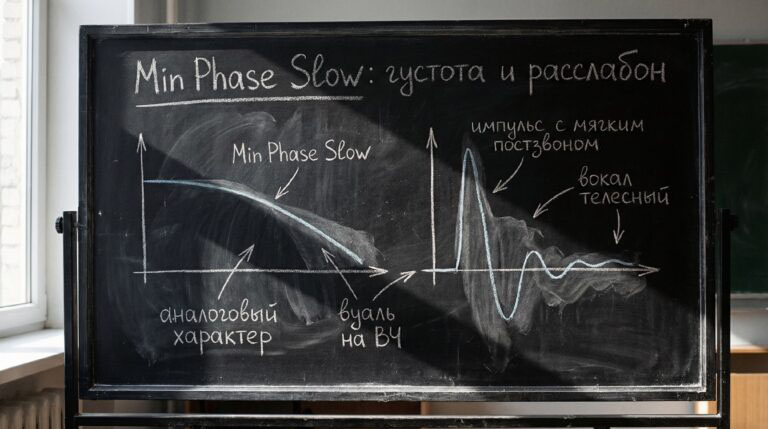 Min Phase Slow: густота и расслабон
Min Phase Slow
аналоговый
характер
вуаль
на ВЧ
импульс с мягким
постзвоном
вокал
телесный